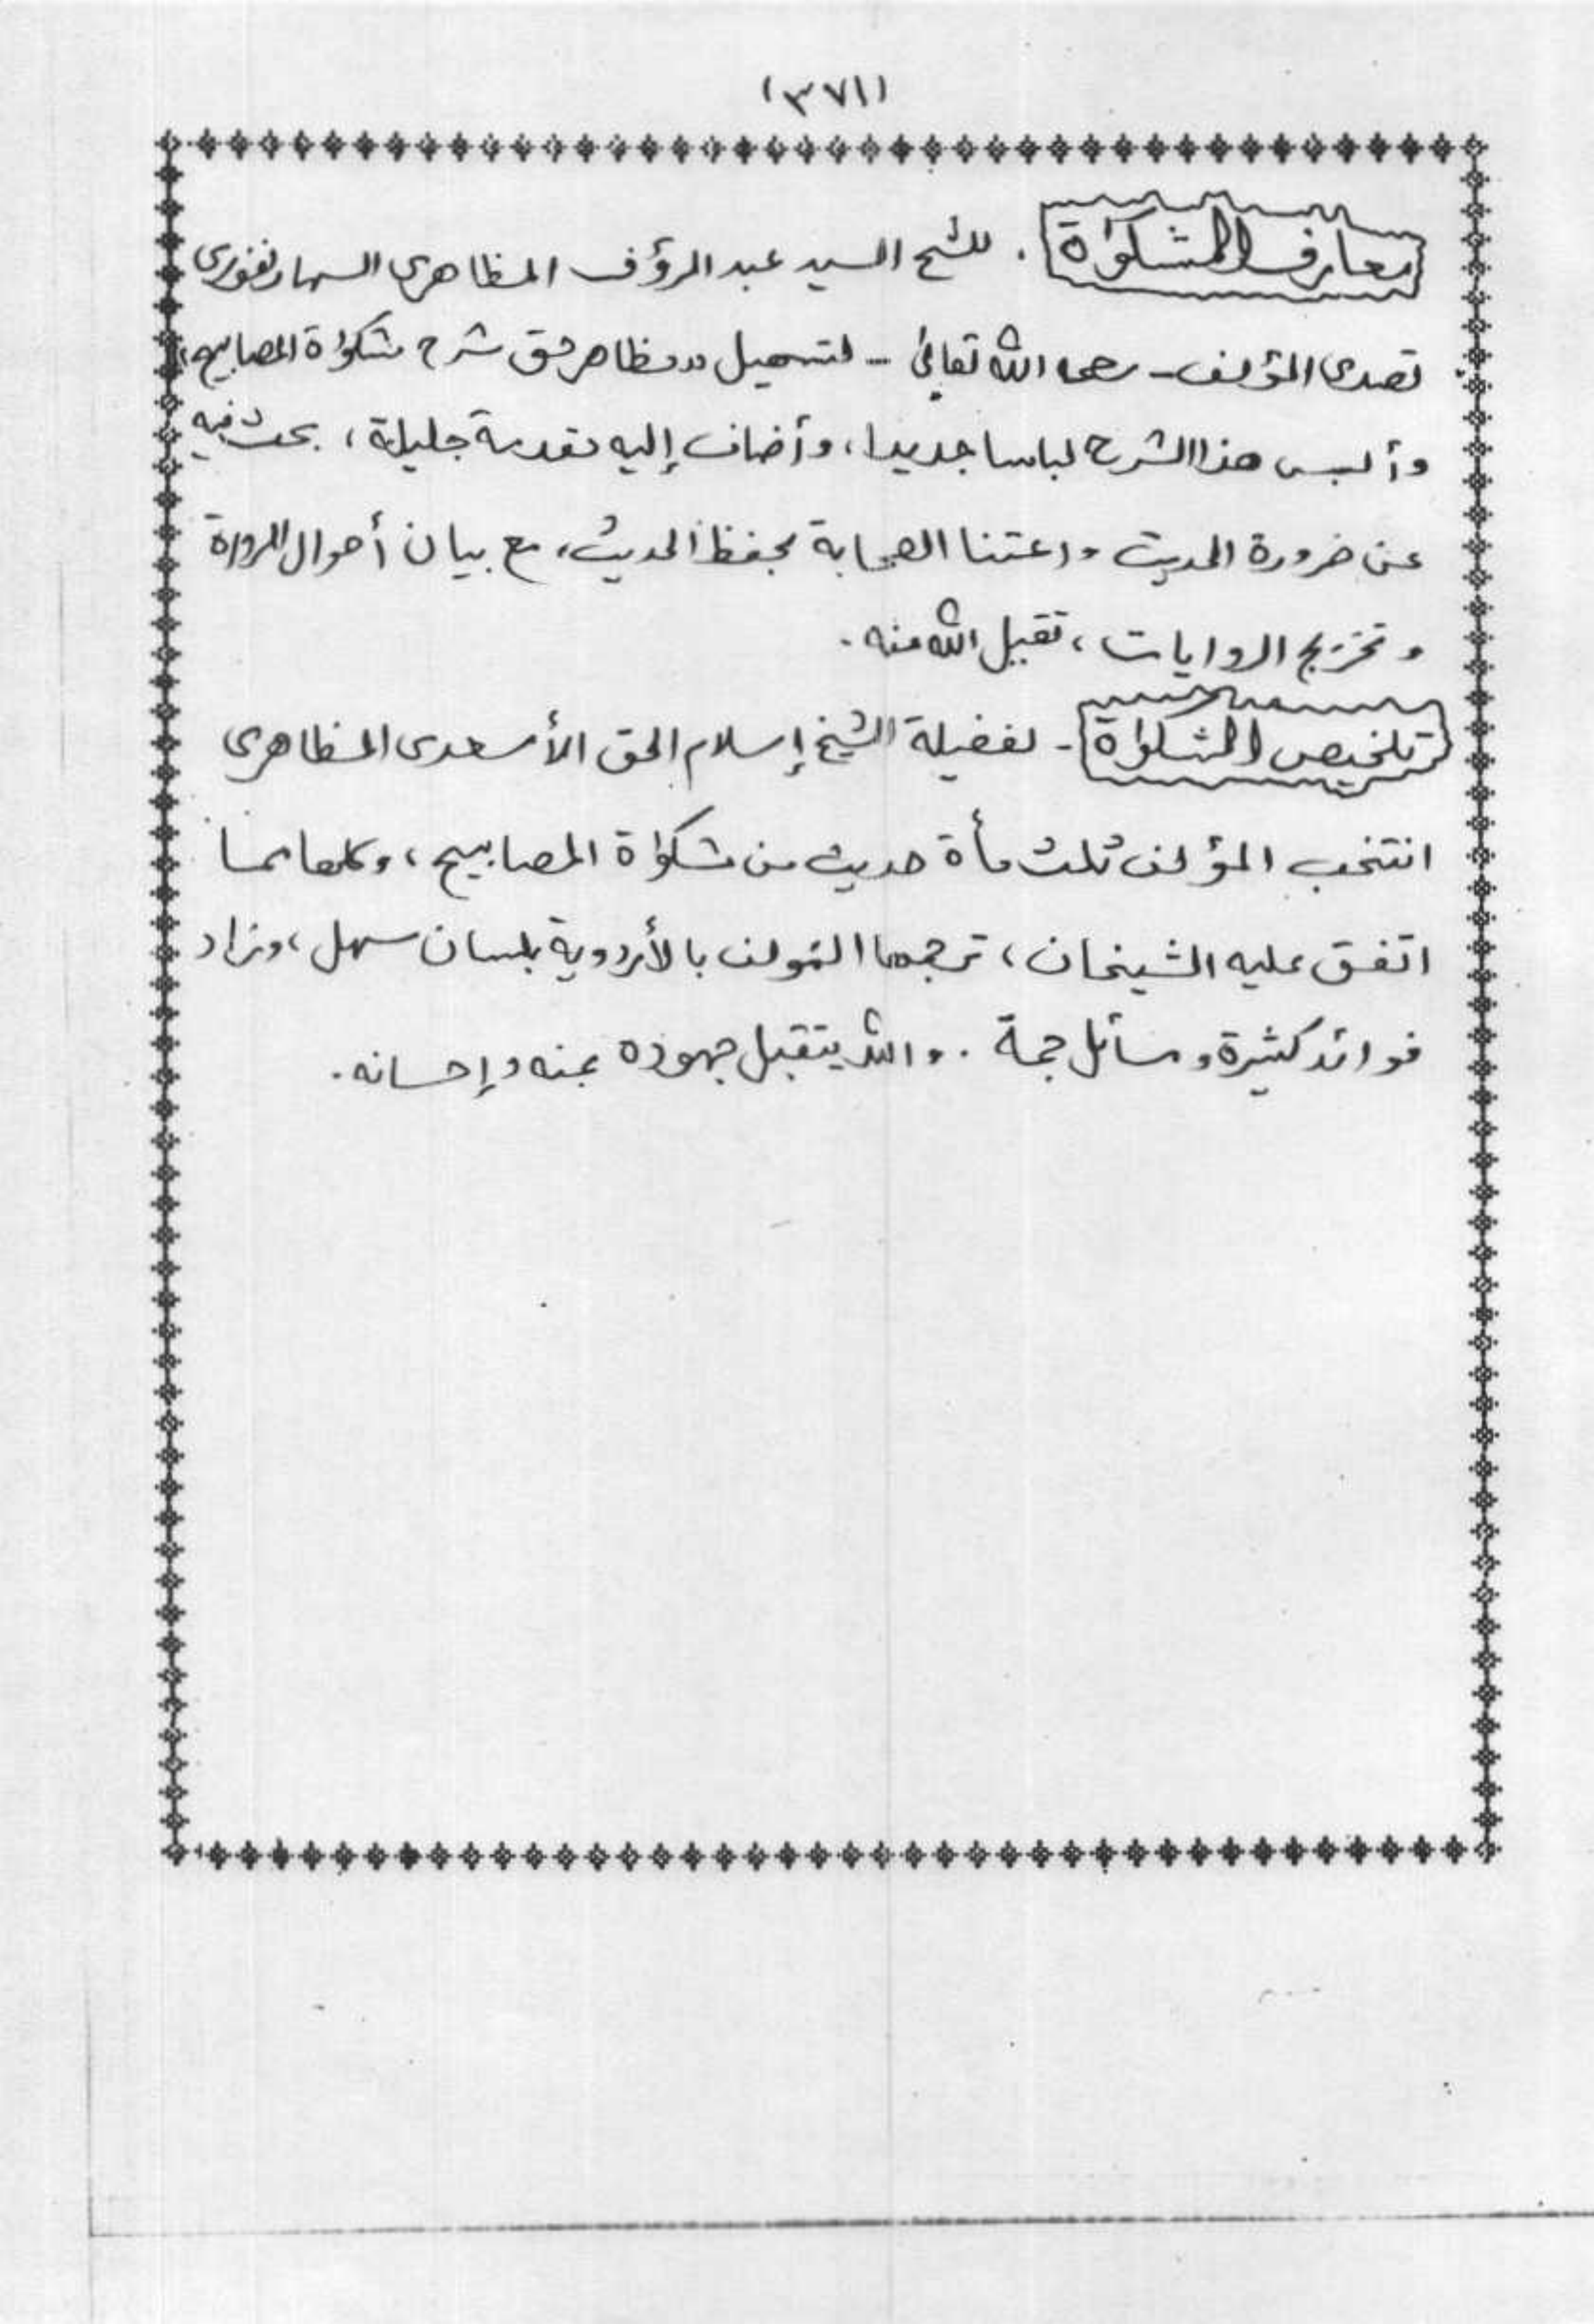 (٣٧١)
معارف المشكوٰة . للشيخ السيد عبد الرؤف المظاهرى السهارنفورى
تصدى المؤلف - رحمه الله تعالىٰ - لتسهيل «مظاهر حق شرح مشكوٰة المصابيح»
وألبس هذا الشرح لباسا جديدا، وأضاف إليه مقدمة جليلة، بحث فيه
عن ضرورة الحديث واعتنا الصحابة بحفظ الحديث، مع بيان أحوال الرواة
وتخريج الروايات، تقبل الله منه.
تلخيص المشكوٰة - لفضيلة الشيخ إسلام الحق الأسعدى المظاهرى
انتخب المؤلف ثلث مأة حديث من مشكوٰة المصابيح، وكلها مما
اتفق عليه الشيخان، ترجمها المؤلف بالأردوية بلسان سهل، وزاد
فوائد كثيرة ومسائل جمة . والله يتقبل جهوده بمنه وإحسانه.